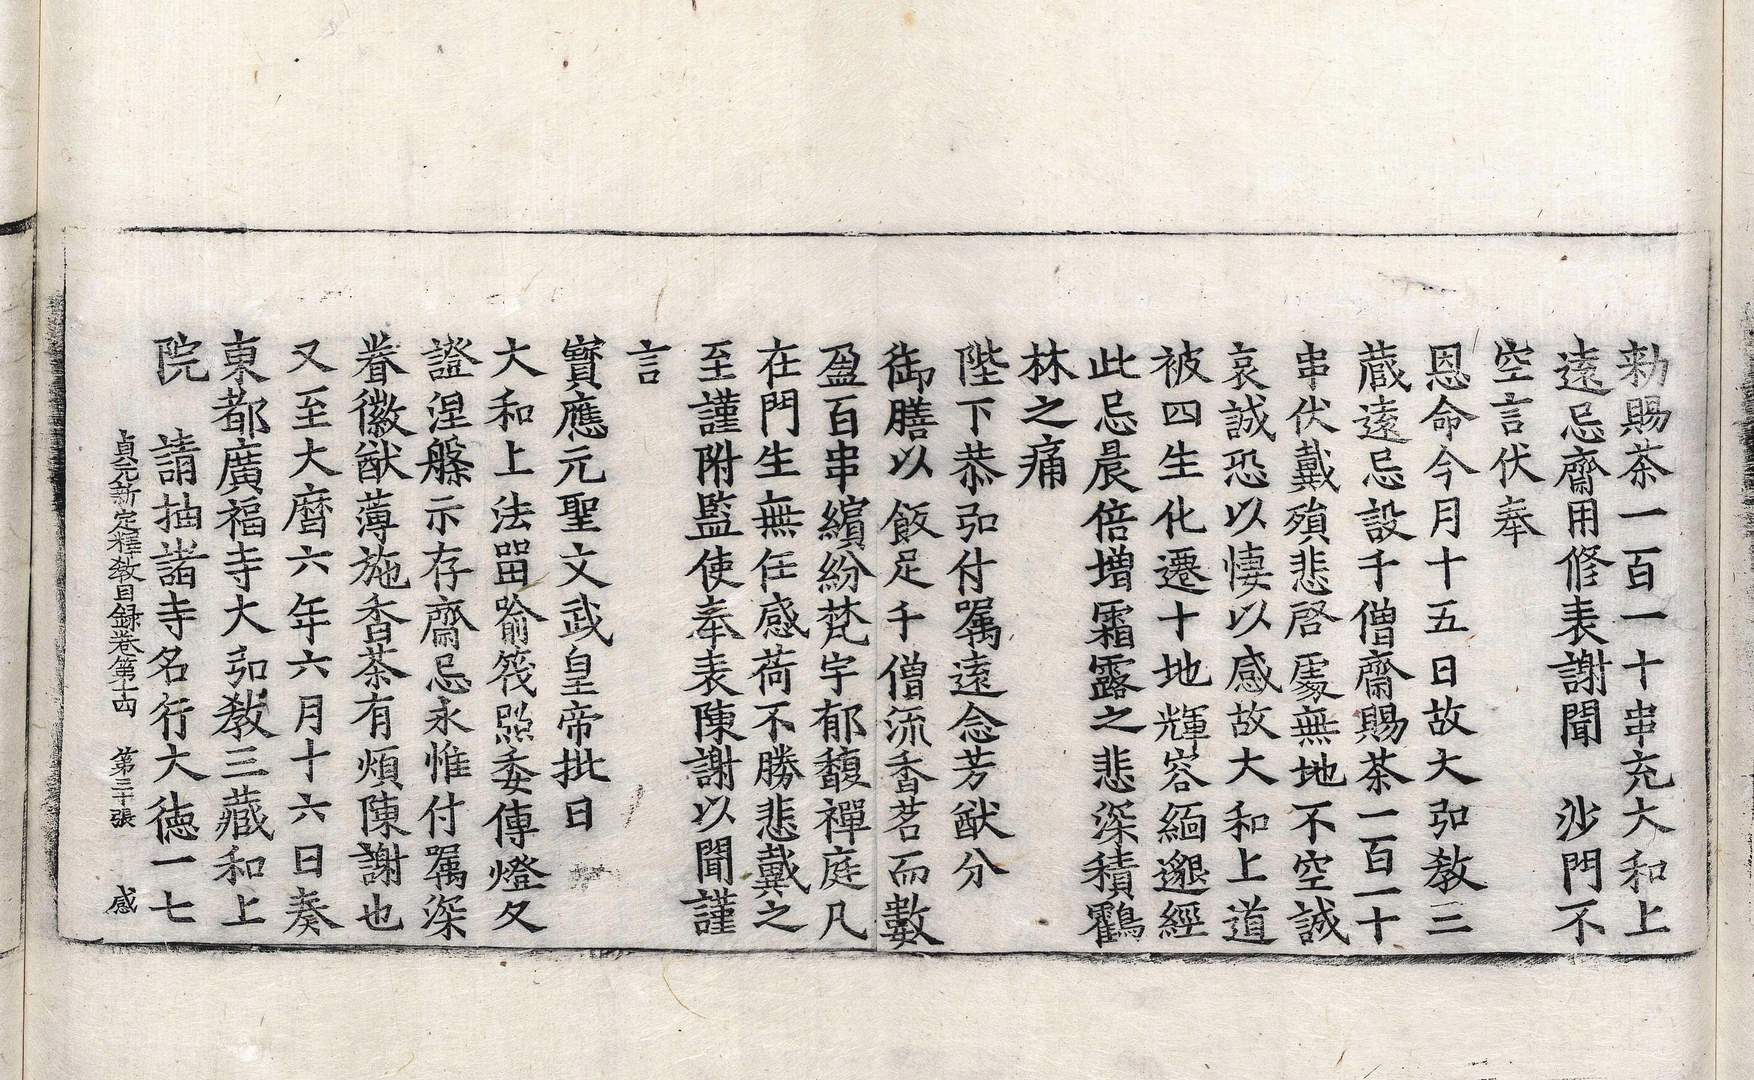 勑賜茶一百一十串充大和上
遠忌齋用修表謝聞　沙門不
空言伏奉
恩命今月十五日故大弘教三
藏遠忌設千僧齋賜茶一百一十
串伏戴殞悲啓處無地不空誠
哀誠恐以悽以感故大和上道
被四生化遷十地輝容緬邈經
此忌晨倍增霜露之悲深積鶴
林之痛
陛下恭弘付囑遠念芳猷分
御膳以飯足千僧流香茗而數
盈百串繽紛梵宇郁馥禪庭凡
在門生無任感荷不勝悲戴之
至謹附監使奉表陳謝以聞謹
言
寶應元聖文武皇帝批曰
大和上法留喻筏照委傳燈久
證涅槃示存齋忌永惟付囑深
眷徽猷薄施香茶有煩陳謝也
又至大曆六年六月十六日奏
東都廣福寺大弘教三藏和上
院　請抽諸寺名行大德一七
貞元新定釋教目錄卷第十四　第三十張　感